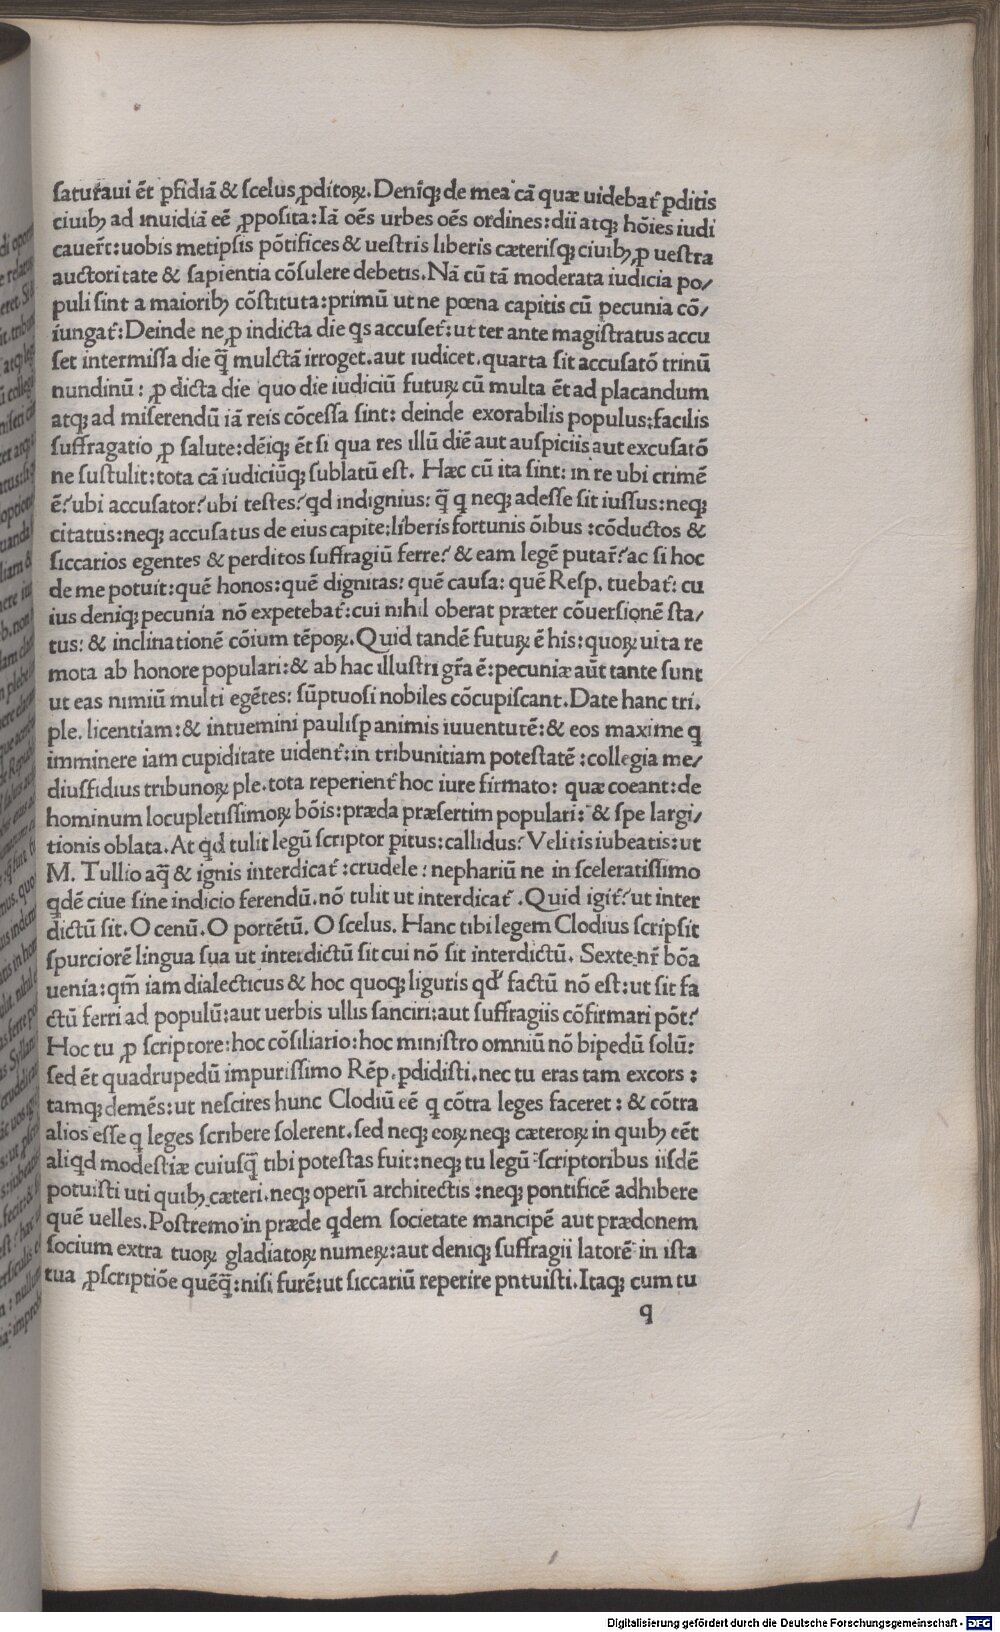 ſaturaui ēt ꝑfidiā & ſcelus ꝓditoꝝ. Deniqꝫ de mea cā quæ uidebat᷑ ꝑditis
ciuibꝫ ad inuidiā eē ꝓpoſita: Iā oēs urbes oēs ordines: dii atqꝫ hōies iudi
cauer̄t: uobis metipſis pōtifices & ueſtris liberis cæteriſqꝫ ciuibꝫ ꝓ ueſtra
auctoritate & ſapientia cōſulere debetis. Nā cū tā moderata iudicia po/
puli ſint a maioribꝫ cōſtituta: primū ut ne pœna capitis cū pecunia cō/
iungat᷑: Deinde ne ꝓ indicta die qs accuſet᷑: ut ter ante magiſtratus accu
ſet intermiſſa die q̄ mulctā irroget. aut iudicet. quarta ſit accuſatō trinū
nundinū: ꝓ dicta die quo die iudiciū futuꝝ cū multa ēt ad placandum
atqꝫ ad miſerendū iā reis cōceſſa ſint: deinde exorabilis populus: facilis
ſuffragatio ꝓ ſalute: dēiqꝫ ēt ſi qua res illū diē aut auſpiciis aut excuſatō
ne ſuſtulit: tota cā iudiciūqꝫ ſublatū eſt. Hæc cū ita ſint: in re ubi crimē
ē? ubi accuſator? ubi teſtes? qd indignius: q̄ q neqꝫ adeſſe ſit iuſſus: neqꝫ
citatus: neqꝫ accuſatus de eius capite: liberis fortunis ōibus: cōductos &
ſiccarios egentes & perditos ſuffragiū ferre? & eam legē putar̄? ac ſi hoc
de me potuit: quē honos: quē dignitas: quē cauſa: quē Reſp. tuebat᷑: cu
ius deniqꝫ pecunia nō expetebat᷑: cui nihil oberat præter cōuerſionē ſta/
tus: & inclinationē cōium tēpoꝝ. Quid tandē futuꝝ ē his: quoꝝ uita re
mota ab honore populari: & ab hac illuſtri gr̄a ē: pecuniæ aūt tante ſunt
ut eas nimiū multi egētes: ſūptuoſi nobiles cōcupiſcant. Date hanc tri.
ple. licentiam: & intuemini pauliſꝑ animis iuuentutē: & eos maxime q
imminere iam cupiditate uident᷑: in tribunitiam poteſtatē: collegia me/
diuſfidius tribunoꝝ ple. tota reperient᷑ hoc iure firmato: quæ coeant: de
hominum locupletiſſimoꝝ bōis: præda præſertim populari: & ſpe largi/
tionis oblata. At qd tulit legū ſcriptor pitus: callidus? Velitis iubeatis: ut
M. Tullio aq̄ & ignis interdicat᷑: crudele: nephariū ne in ſceleratiſſimo
qdē ciue ſine indicio ferendū. nō tulit ut interdicat᷑. Quid igit᷑? ut inter
dictū ſit. O cenū. O portētū. O ſcelus. Hanc tibi legem Clodius ſcripſit
ſpurciorē lingua ſua ut interdictū ſit cui nō ſit interdictū. Sexte nr̄ bōa
uenia: qm̄ iam dialecticus & hoc quoqꝫ liguris qd factū nō eſt: ut ſit fa
ctū ferri ad populū: aut uerbis ullis ſanciri: aut ſuffragiis cōfirmari pōt?
Hoc tu ꝓ ſcriptore: hoc cōſiliario: hoc miniſtro omniū nō bipedū ſolū:
ſed ēt quadrupedū impuriſſimo Rēp. ꝑdidiſti. nec tu eras tam excors:
tamqꝫ demēs: ut neſcires hunc Clodiū eē q cōtra leges faceret: & cōtra
alios eſſe q leges ſcribere ſolerent. ſed neqꝫ eoꝝ neqꝫ cæteroꝝ in quibꝫ eēt
aliqd modeſtiæ cuiuſq̄ tibi poteſtas fuit: neqꝫ tu legū ſcriptoribus iiſdē
potuiſti uti quibꝫ cæteri. neqꝫ operū architectis: neqꝫ pontificē adhibere
quē uelles. Poſtremo in præde qdem ſocietate mancipē aut prædonem
ſocium extra tuoꝝ gladiatoꝝ numeꝝ: aut deniqꝫ ſuffragii latorē in iſta
tua ꝓſcriptiōe quēq̄: niſi furē: ut ſiccariū reperire pntuiſti. Itaqꝫ cum tu
q
Digitalisierung gefördert durch die Deutsche Forschungsgemeinschaft - DFG